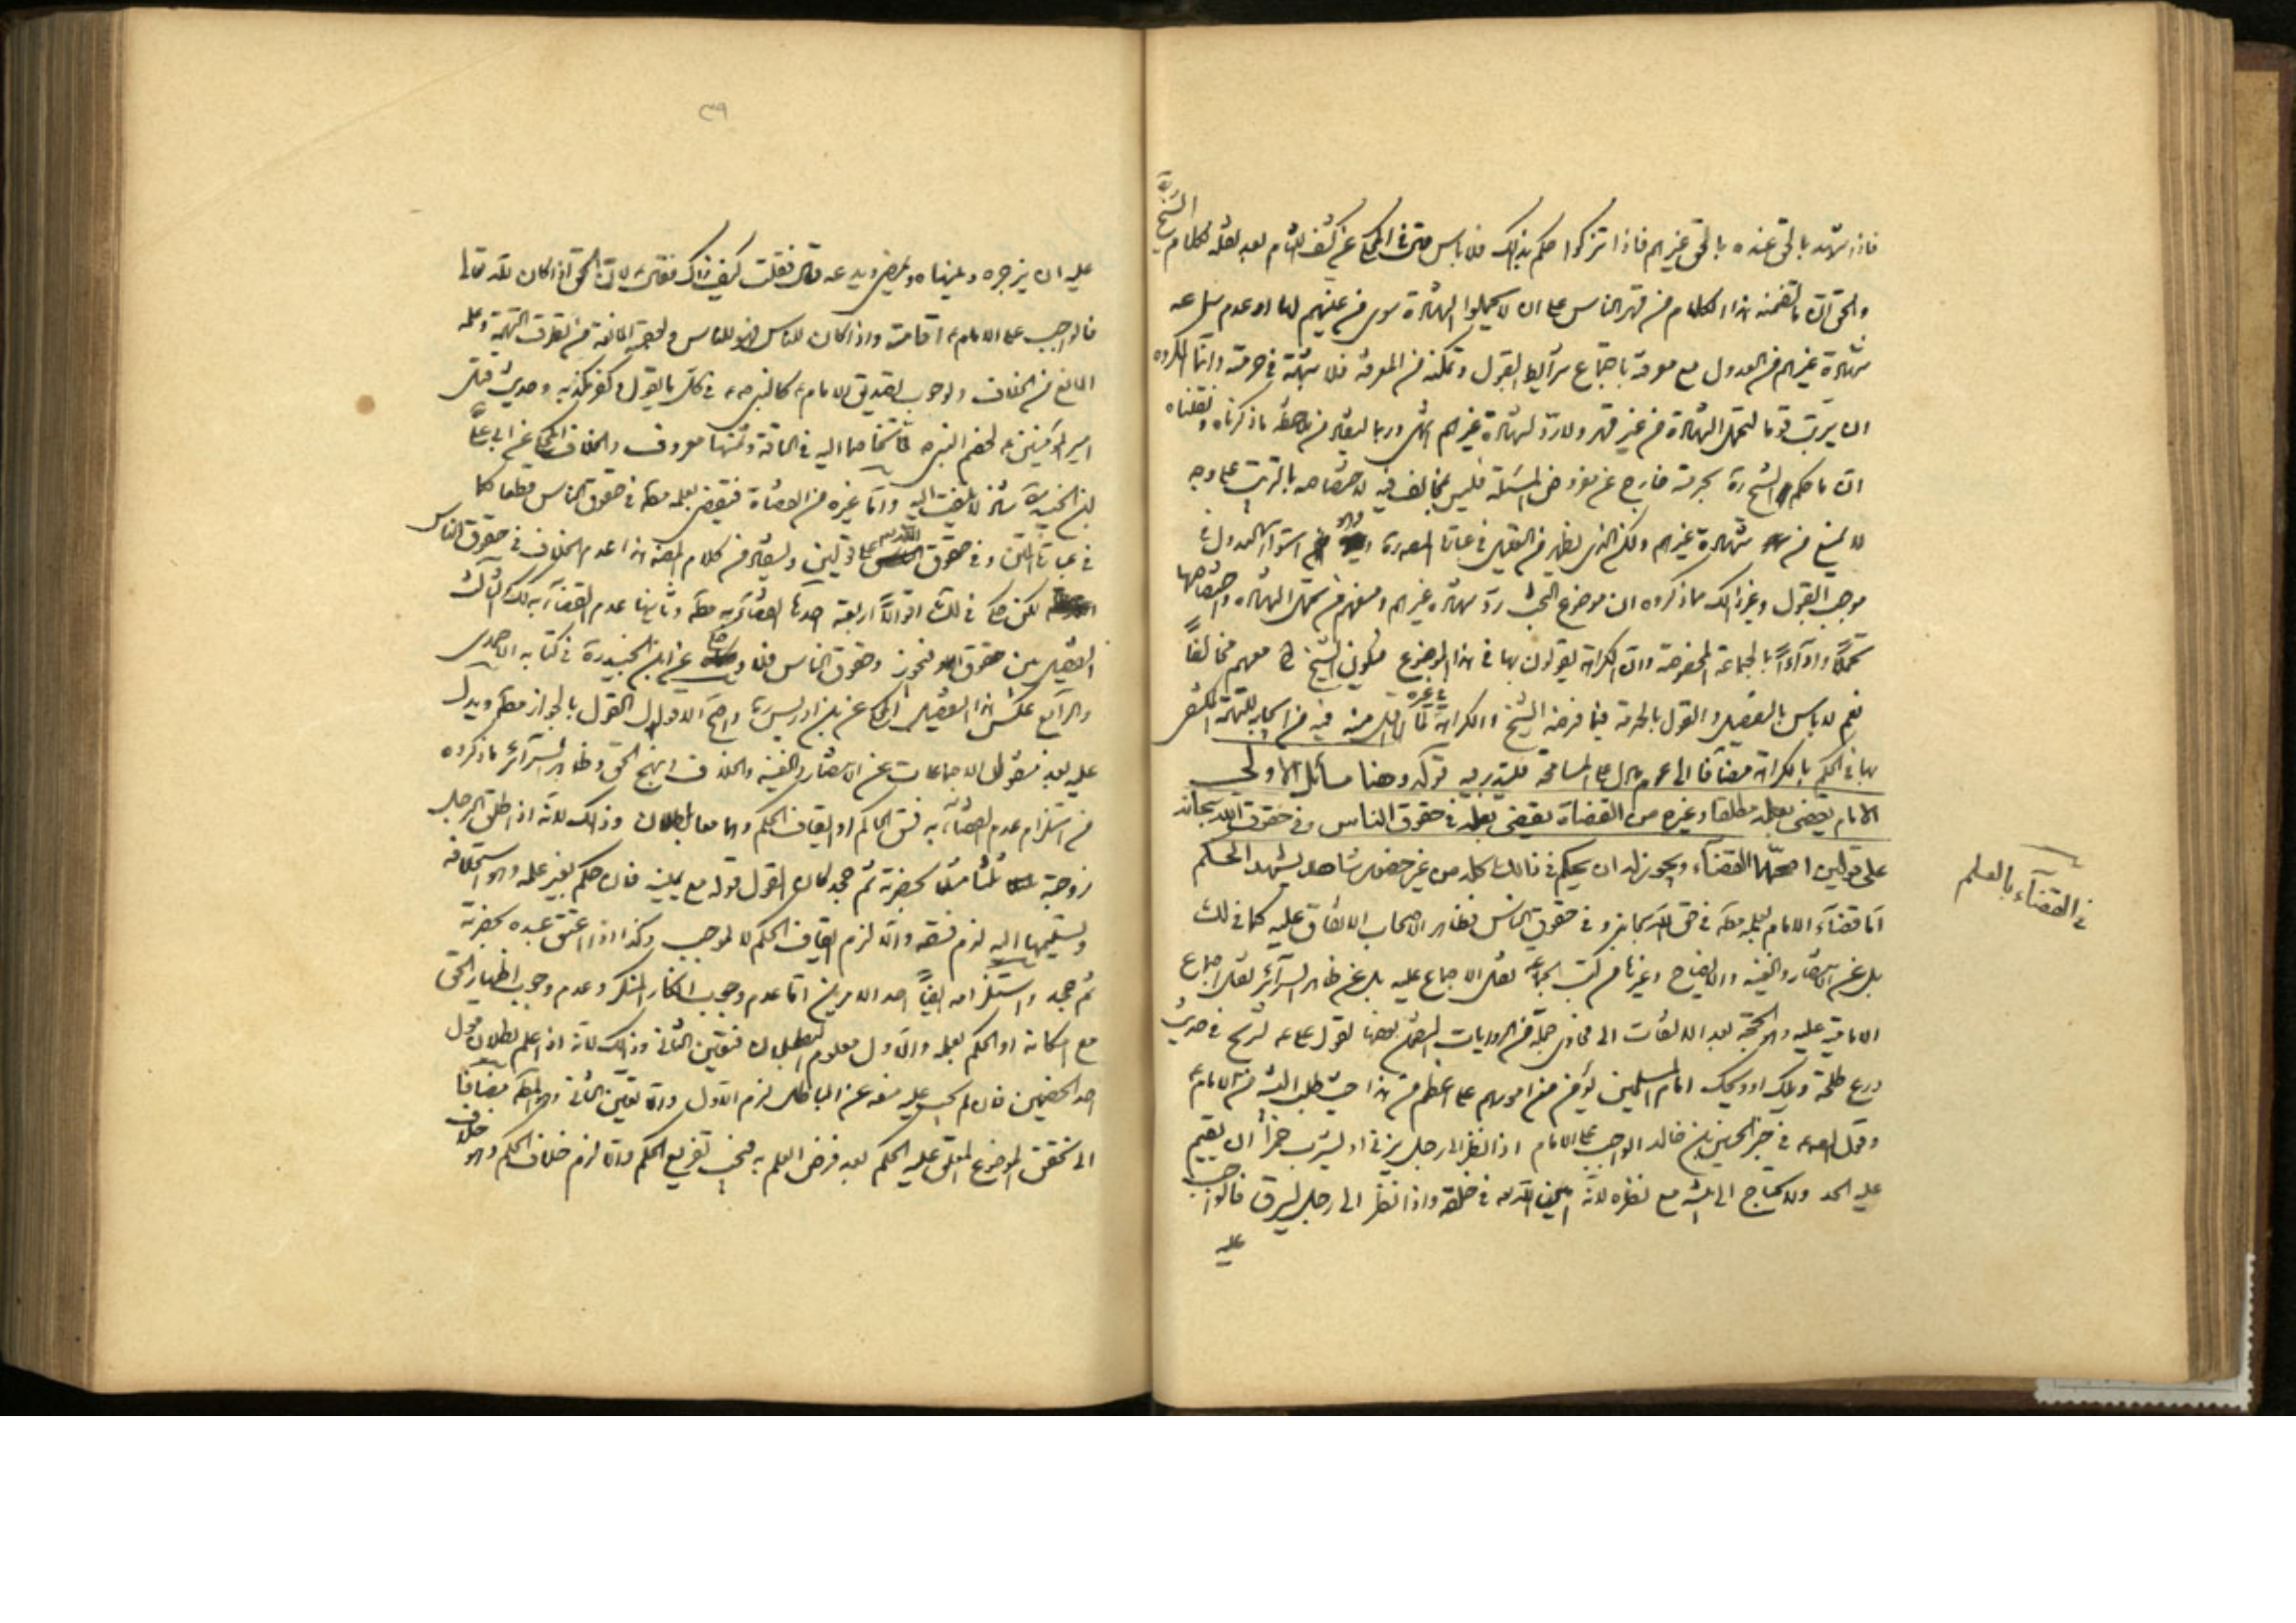 فاذا شهد بالحق عنده بالحق غيرهم فاذا تزكوا حكم بذلك فلا باس حتى في المحكي عن كشف اللثام بعد نقله لكلام الشيخ ره
والحق ان ما تضمنه هذا الكلام من قهر الناس على ان لا يحملوا الشهادة سوى من عينهم لها او عدم سماعه
شهادة غيرهم من العدول مع معرفة باجتماع شرايط القبول وتمكنه من المعرفة فلا شبهة في حرمته وانما المكروه
ان يرتب قوما لتحمل الشهادة من غير قهر ولا رد لشهادة غيرهم انتهى وربما يستفاد من ملاحظة ما ذكرناه ونقلناه
ان ما حكم الشيخ ره بحرمته خارج عن مفروض المسئلة فليس مخالف فيه لاختصاصه بالترتيب على وجه
لا يمنع من شهادة غيرهم ولكن الذي يظهر من التعليل في عباراتهم استواء العدول في
موجب القبول وغير ذلك مما ذكروه ان موضوع البحث رد شهادة غيرهم ومنعهم من تحمل الشهادة واختصاصها
تحملا واداء بالجماعة المخصوصة وان الكراهة يقولون بها في هذا الموضوع فيكون الشيخ معهم مخالفا
نعم لا باس بالتفصيل والقول بالحرمة فيما فرضه الشيخ والكراهة في غيره
بها في الحكم بالكراهة مضافا الى عموم ما دل على المسامحة فليتدبر فيه قوله وهنا مسائل الاولى
الامام يقضى بعلمه مطلقا وغيره من القضاة يقضى بعلمه في حقوق الناس وفي حقوق الله سبحانه
على قولين اصحهما القضاء ويجوز له ان يحكم في ذلك كله من غير حضور شاهد يشهد الحكم
اما قضاء الامام بعلمه مطلقا في حق الله سبحانه وفي حقوق الناس فظاهر الاصحاب الاتفاق عليه كما في لك
بل عن الانتصار والغنية والايضاح وغيرها من كتب الجماعة نقل الاجماع عليه بل عن ظاهر السرائر نقل اجماع
الامامية عليه وهو الحجة بعد الالتفات الى فحاوى جملة من الروايات المتضمن بعضها لقول على ع لشريح في حديث
درع طلحة ويلك او ويحك امام المسلمين يؤمن من امورهم على اعظم من هذا حيث طلب البينة من الامام ع
وقول الص ع في خبر الحسين بن خالد الواجب على الامام اذا نظر الى رجل يزني او يشرب خمرا ان يقيم
عليه الحد ولا يحتاج الى بينة مع نظره لانه امين الله في خلقه واذا نظر الى رجل يسرق فالواجب
عليه
في القضاء بالعلم
٣٩
عليه ان يزجره وينهاه ويمضى ويدعه قال فقلت كيف ذاك فقال لان الحق اذا كان لله تعالى
فالواجب على الامام ع اقامته واذا كان للناس فهو للناس والعصمة المانعة من تطرق التهمة وعلمه
المانع من الخلاف ولوجوب تصديق الامام ع كالنبي ص في كل ما يقول وكفر مكذبه وحديث قتل
امير المؤمنين ع لخصم النبي ص لما تخاصما اليه في الناقة وثمنها معروف والخلاف المحكي عن ابي على
بن الجنيد ره شاذ لا يلتفت اليه واما غيره من القضاة فيقضى بعلمه مطلقا في حقوق الناس قطعا كما
في عبارة المتن وفي حقوق الله تعالى على قولين ويستفاد من كلام المصنف هذا عدم الخلاف في حقوق الناس
لكن حكى في لك اقوالا اربعة احدها القضاء به مطلقا وثانيها عدم القضاء به كذلك الثالث
التفصيل بين حقوق الله فيجوز وحقوق الناس فلا حكاه عن ابن الجنيد ره في كتابه الاحمدى
والرابع عكس هذا التفصيل المحكي عن بن ادريس ره واصح الاقوال القول بالجواز مطلقا ويدل
عليه بعد منقول الاجماعات عن الانتصار والغنية والخلاف ونهج الحق وظاهر السرائر ما ذكروه
من استلزام عدم القضاء به فسق الحاكم او ايقاف الحكم وهما معا باطلان وذلك لانه اذا طلق الرجل
زوجته ثلثا مثلا بحضرته ثم جحد كان القول قوله مع يمينه فان حكم بغير علمه وهو استحلافه
وتسليمها اليه لزم فسقه والا لزم ايقاف الحكم لا لموجب وكذا اذا اعتق عبده بحضرته
ثم جحد واستلزامه ايضا احد الامرين اما عدم وجوب انكار المنكر وعدم وجوب اظهار الحق
مع امكانه او الحكم بعلمه والاول معلوم البطلان فتعين الثاني وذلك لانه اذا علم بطلان قول
احد الخصمين فان لم يجب عليه منعه عن الباطل لزم الاول والا تعين الثاني وهو المطلوب مضافا
الى تحقق الموضوع المعلق عليه الحكم بعد فرض العلم به فيجب تفريع الحكم والا لزم خلاف الحكم وهو خلاف